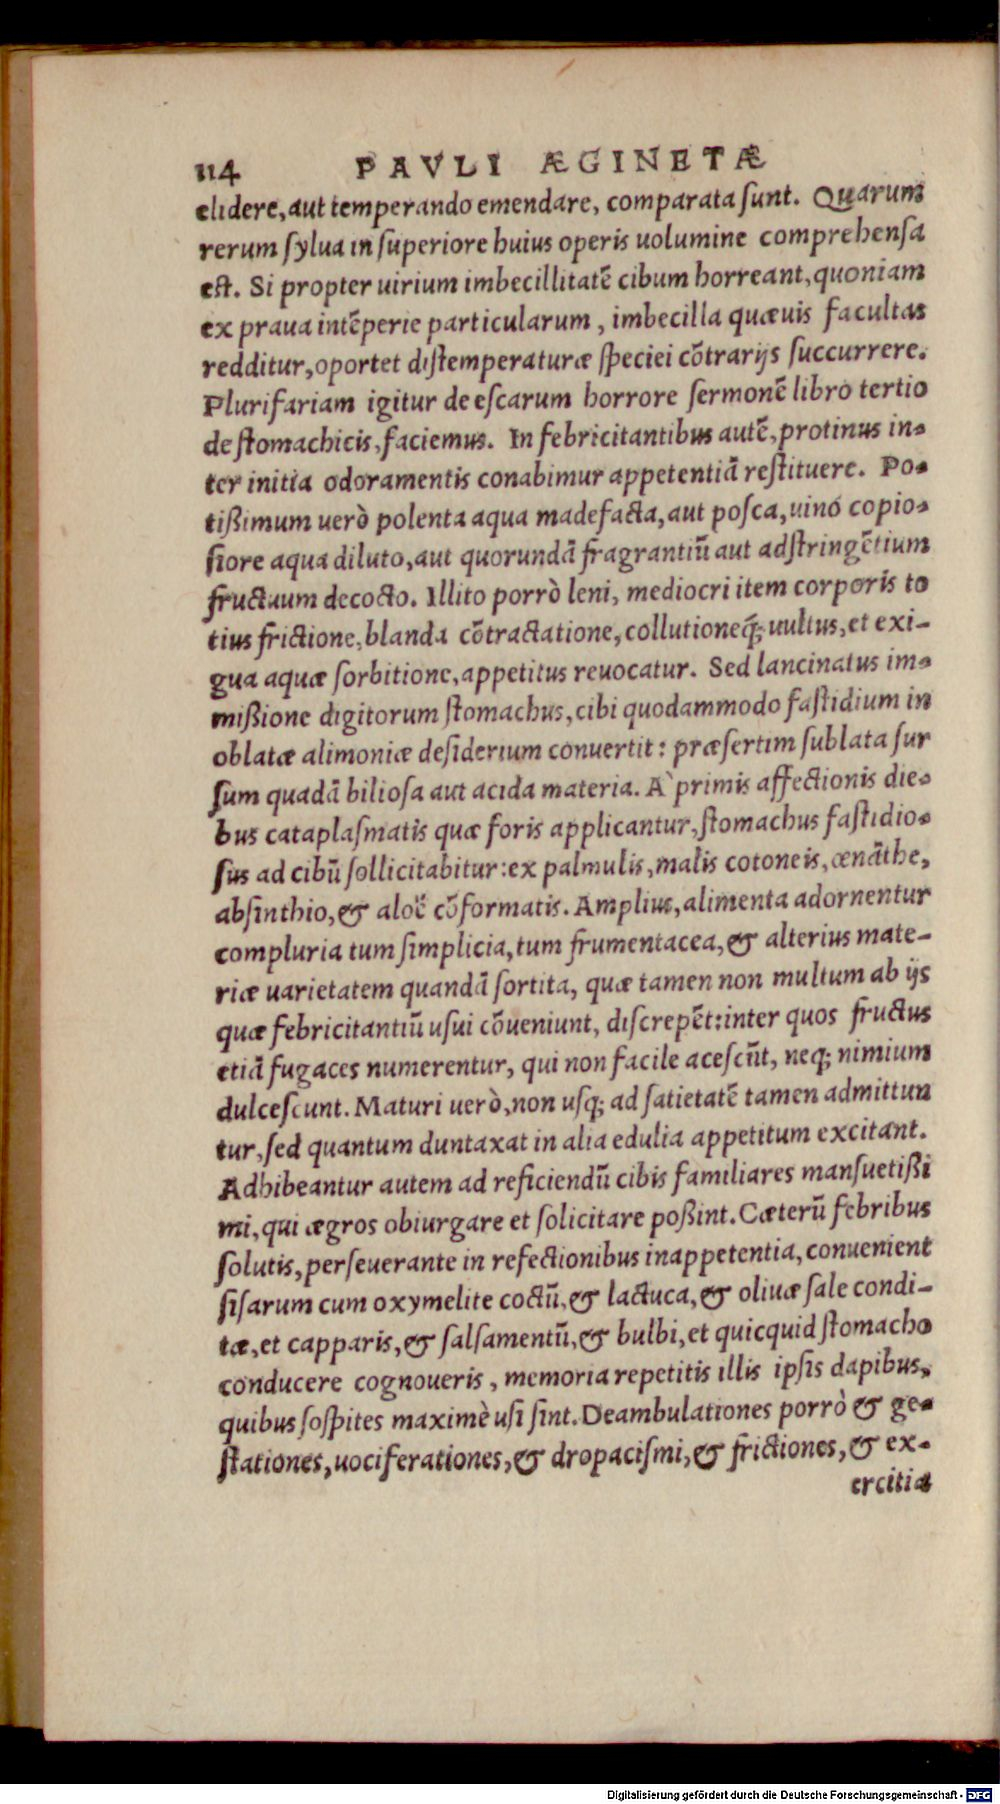 114 PAVLI ÆGINETÆ
elidere, aut temperando emendare, comparata ſunt. Quarum
rerum ſylua in ſuperiore huius operis uolumine comprehenſa
eſt. Si propter uirium imbecillitatē cibum horreant, quoniam
ex praua intēperie particularum, imbecilla quæuis facultas
redditur, oportet diſtemperaturæ ſpeciei cōtrarijs ſuccurrere.
Plurifariam igitur de eſcarum horrore ſermonē libro tertio
de ſtomachicis, faciemus. In febricitantibus autē, protinus in-
ter initia odoramentis conabimur appetentiā reſtituere. Po-
tißimum uerò polenta aqua madefacta, aut poſca, uino copio-
ſiore aqua diluto, aut quorundā fragrantiū aut adſtringētium
fructuum decocto. Illito porrò leni, mediocri item corporis to
tius frictione, blanda cōtractatione, collutioneq́; uultus, et exi-
gua aquæ ſorbitione, appetitus reuocatur. Sed lancinatus im-
mißione digitorum ſtomachus, cibi quodammodo faſtidium in
oblatæ alimoniæ deſiderium conuertit: præſertim ſublata ſur
ſum quadā bilioſa aut acida materia. A` primis affectionis die-
bus cataplaſmatis quæ foris applicantur, ſtomachus faſtidio-
ſus ad cibū ſollicitabitur: ex palmulis, malis cotoneis, œnāthe,
abſinthio, & aloë cōformatis. Amplius, alimenta adornentur
compluria tum ſimplicia, tum frumentacea, & alterius mate-
riæ uarietatem quandā ſortita, quæ tamen non multum ab ijs
quæ febricitantiū uſui cōueniunt, diſcrepēt: inter quos fructus
etiā fugaces numerentur, qui non facile aceſcūt, neq; nimium
dulceſcunt. Maturi uerò, non uſq; ad ſatietatē tamen admittun
tur, ſed quantum duntaxat in alia edulia appetitum excitant.
Adhibeantur autem ad reficiendū cibis familiares manſuetißi
mi, qui ægros obiurgare et ſolicitare poßint. Cæterū febribus
ſolutis, perſeuerante in refectionibus inappetentia, conuenient
ſiſarum cum oxymelite coctū, & lactuca, & oliuæ ſale condi-
tæ, et capparis, & ſalſamentū, & bulbi, et quicquid ſtomacho
conducere cognoueris, memoria repetitis illis ipſis dapibus,
quibus ſoſpites maximè uſi ſint. Deambulationes porrò & ge-
ſtationes, uociferationes, & dropaciſmi, & frictiones, & ex-
ercitia
Digitalisierung gefördert durch die Deutsche Forschungsgemeinschaft - DFG